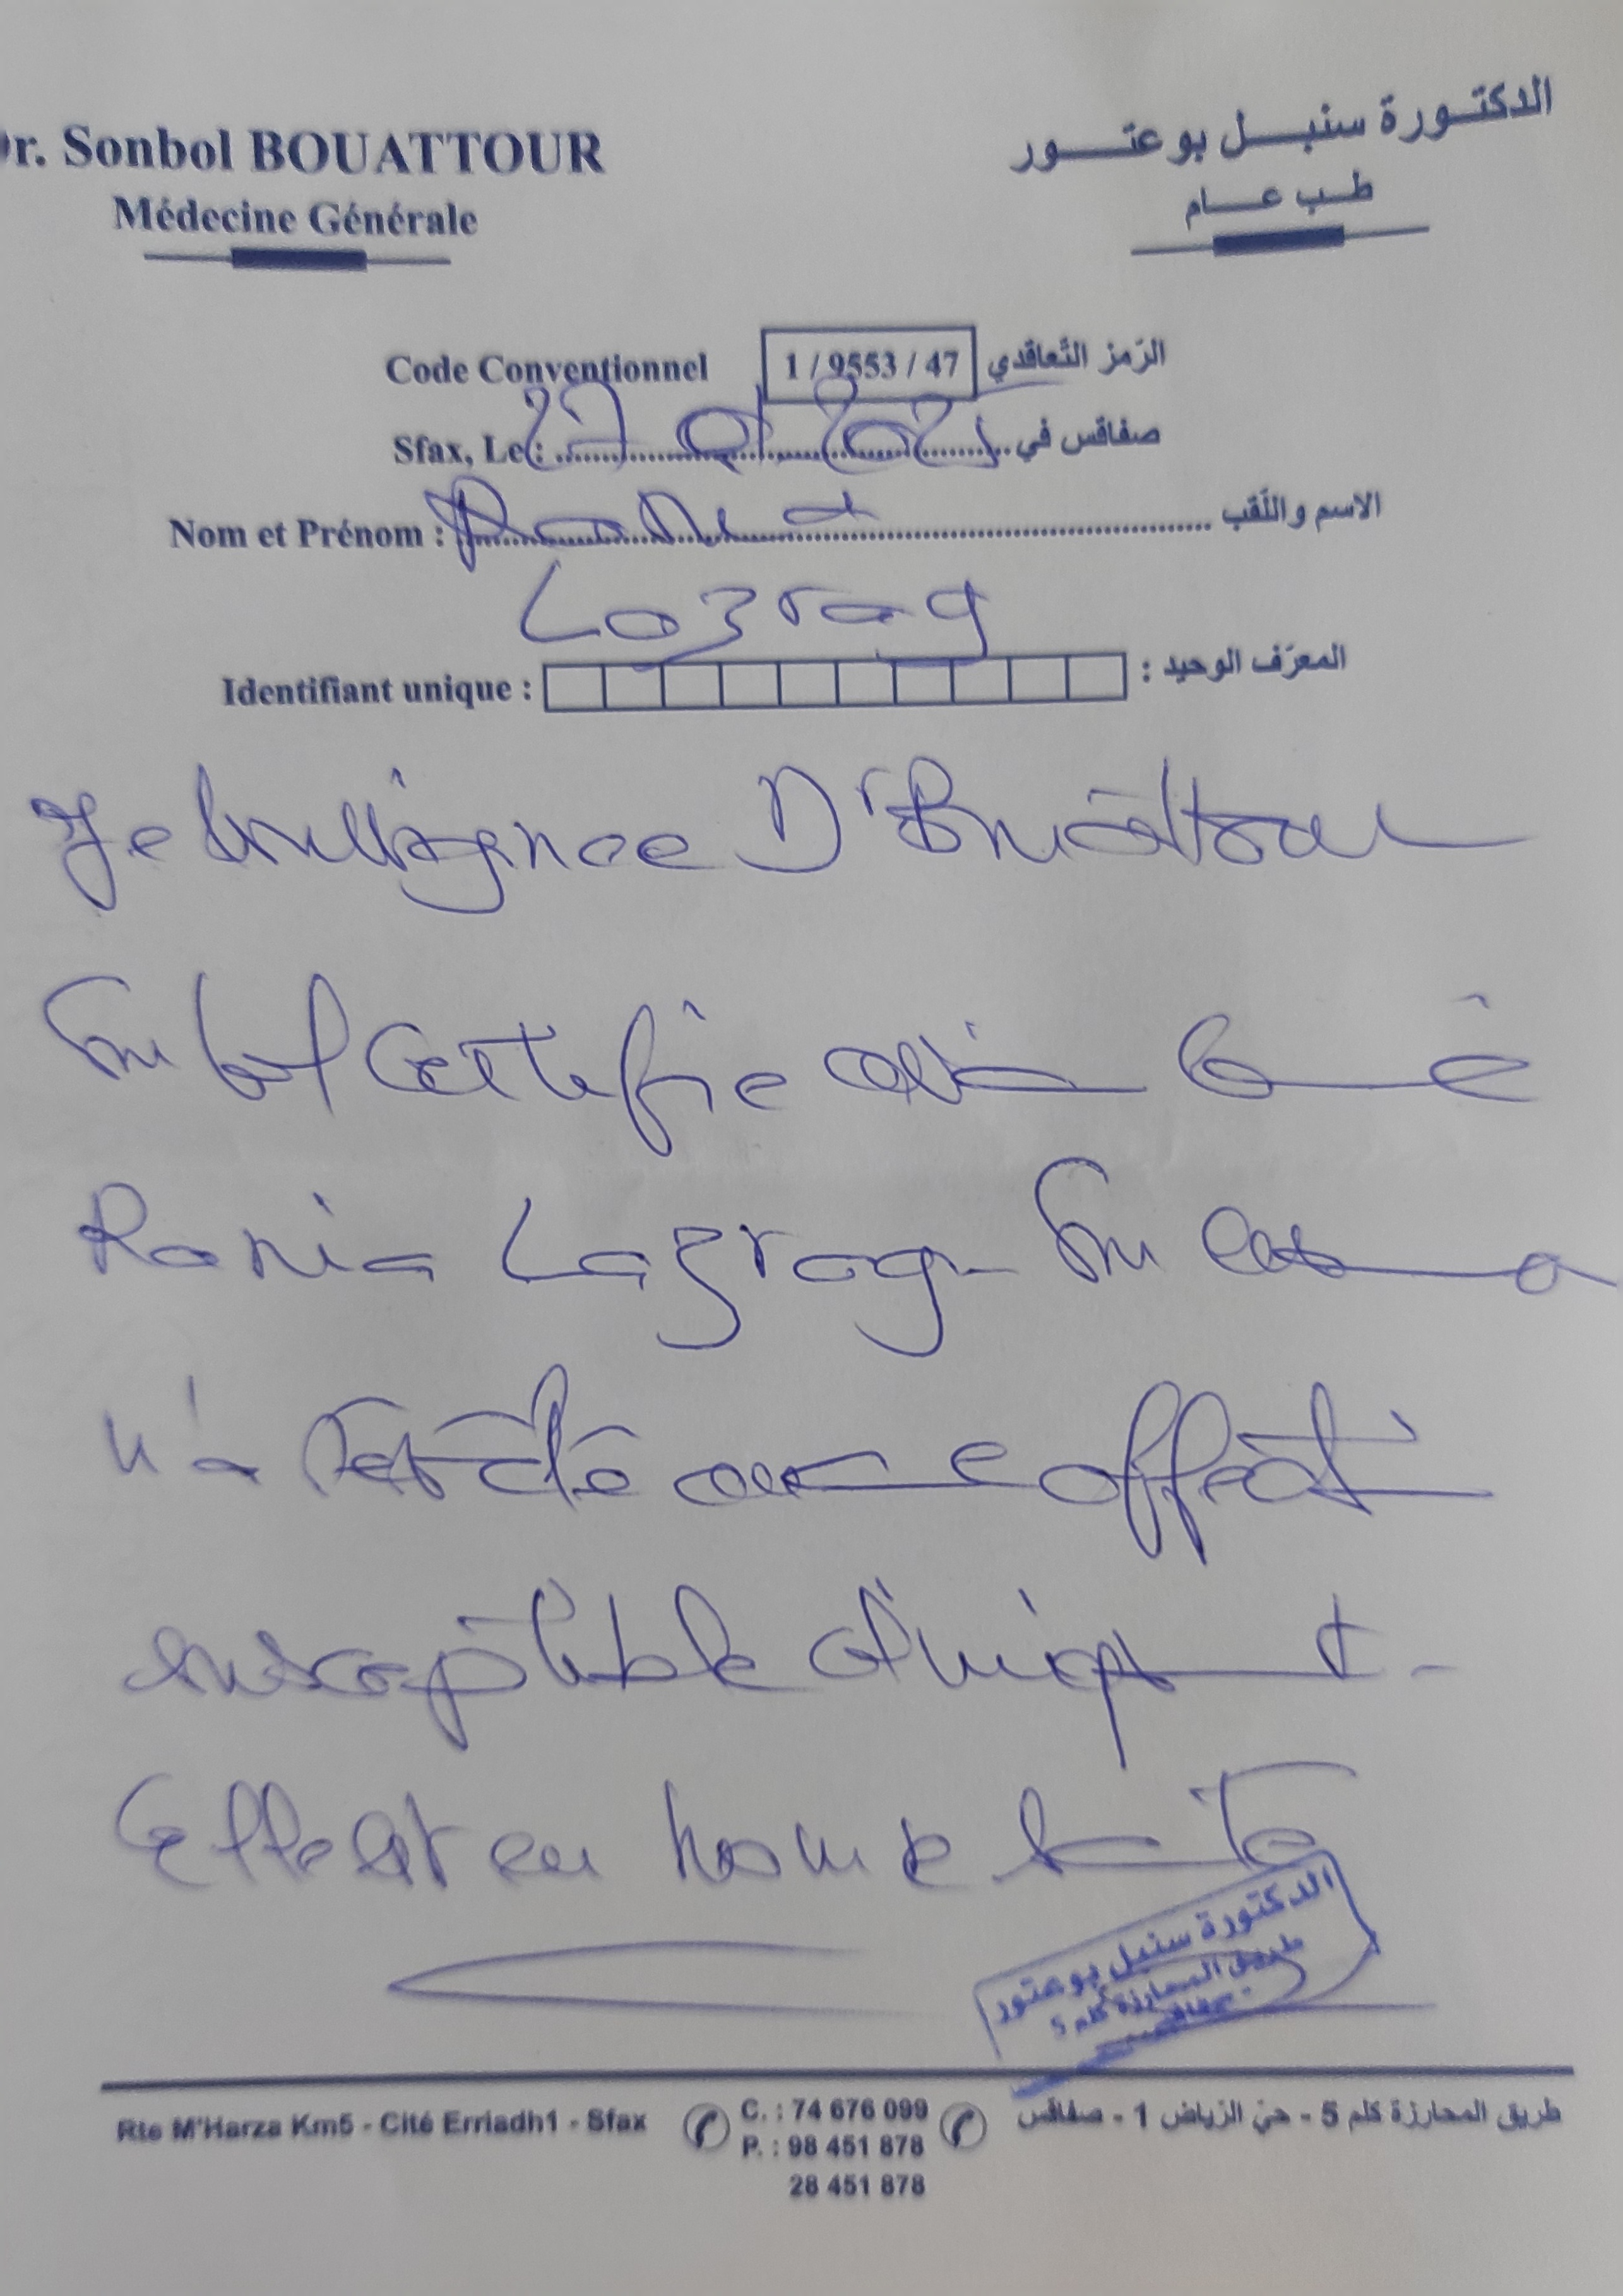 Dr. Sonbol BOUATTOUR
Médecine Générale
الدكتورة سنبل بوعتور
طب عام
Code Conventionnel 1 / 9553 / 47 الرّمز التّعاقدي
Sfax, Le : 27 01 202 صفاقس في
Nom et Prénom : Rania الاسم واللّقب
Lazrag
Identifiant unique : المعرّف الوحيد :
Je Dr Bouattour
Sonbol certifie avoir
Rania Lazrag Son
n'a affect
susceptible
Elle est en bonne santé
الدكتورة سنبل بوعتور
طريق المحارزة كلم 5
صفاقس
Rte M'Harza Km5 - Cité Erriadh1 - Sfax
C. : 74 676 099
P. : 98 451 878
28 451 878
طريق المحارزة كلم 5 - حيّ الرّياض 1 - صفاقس